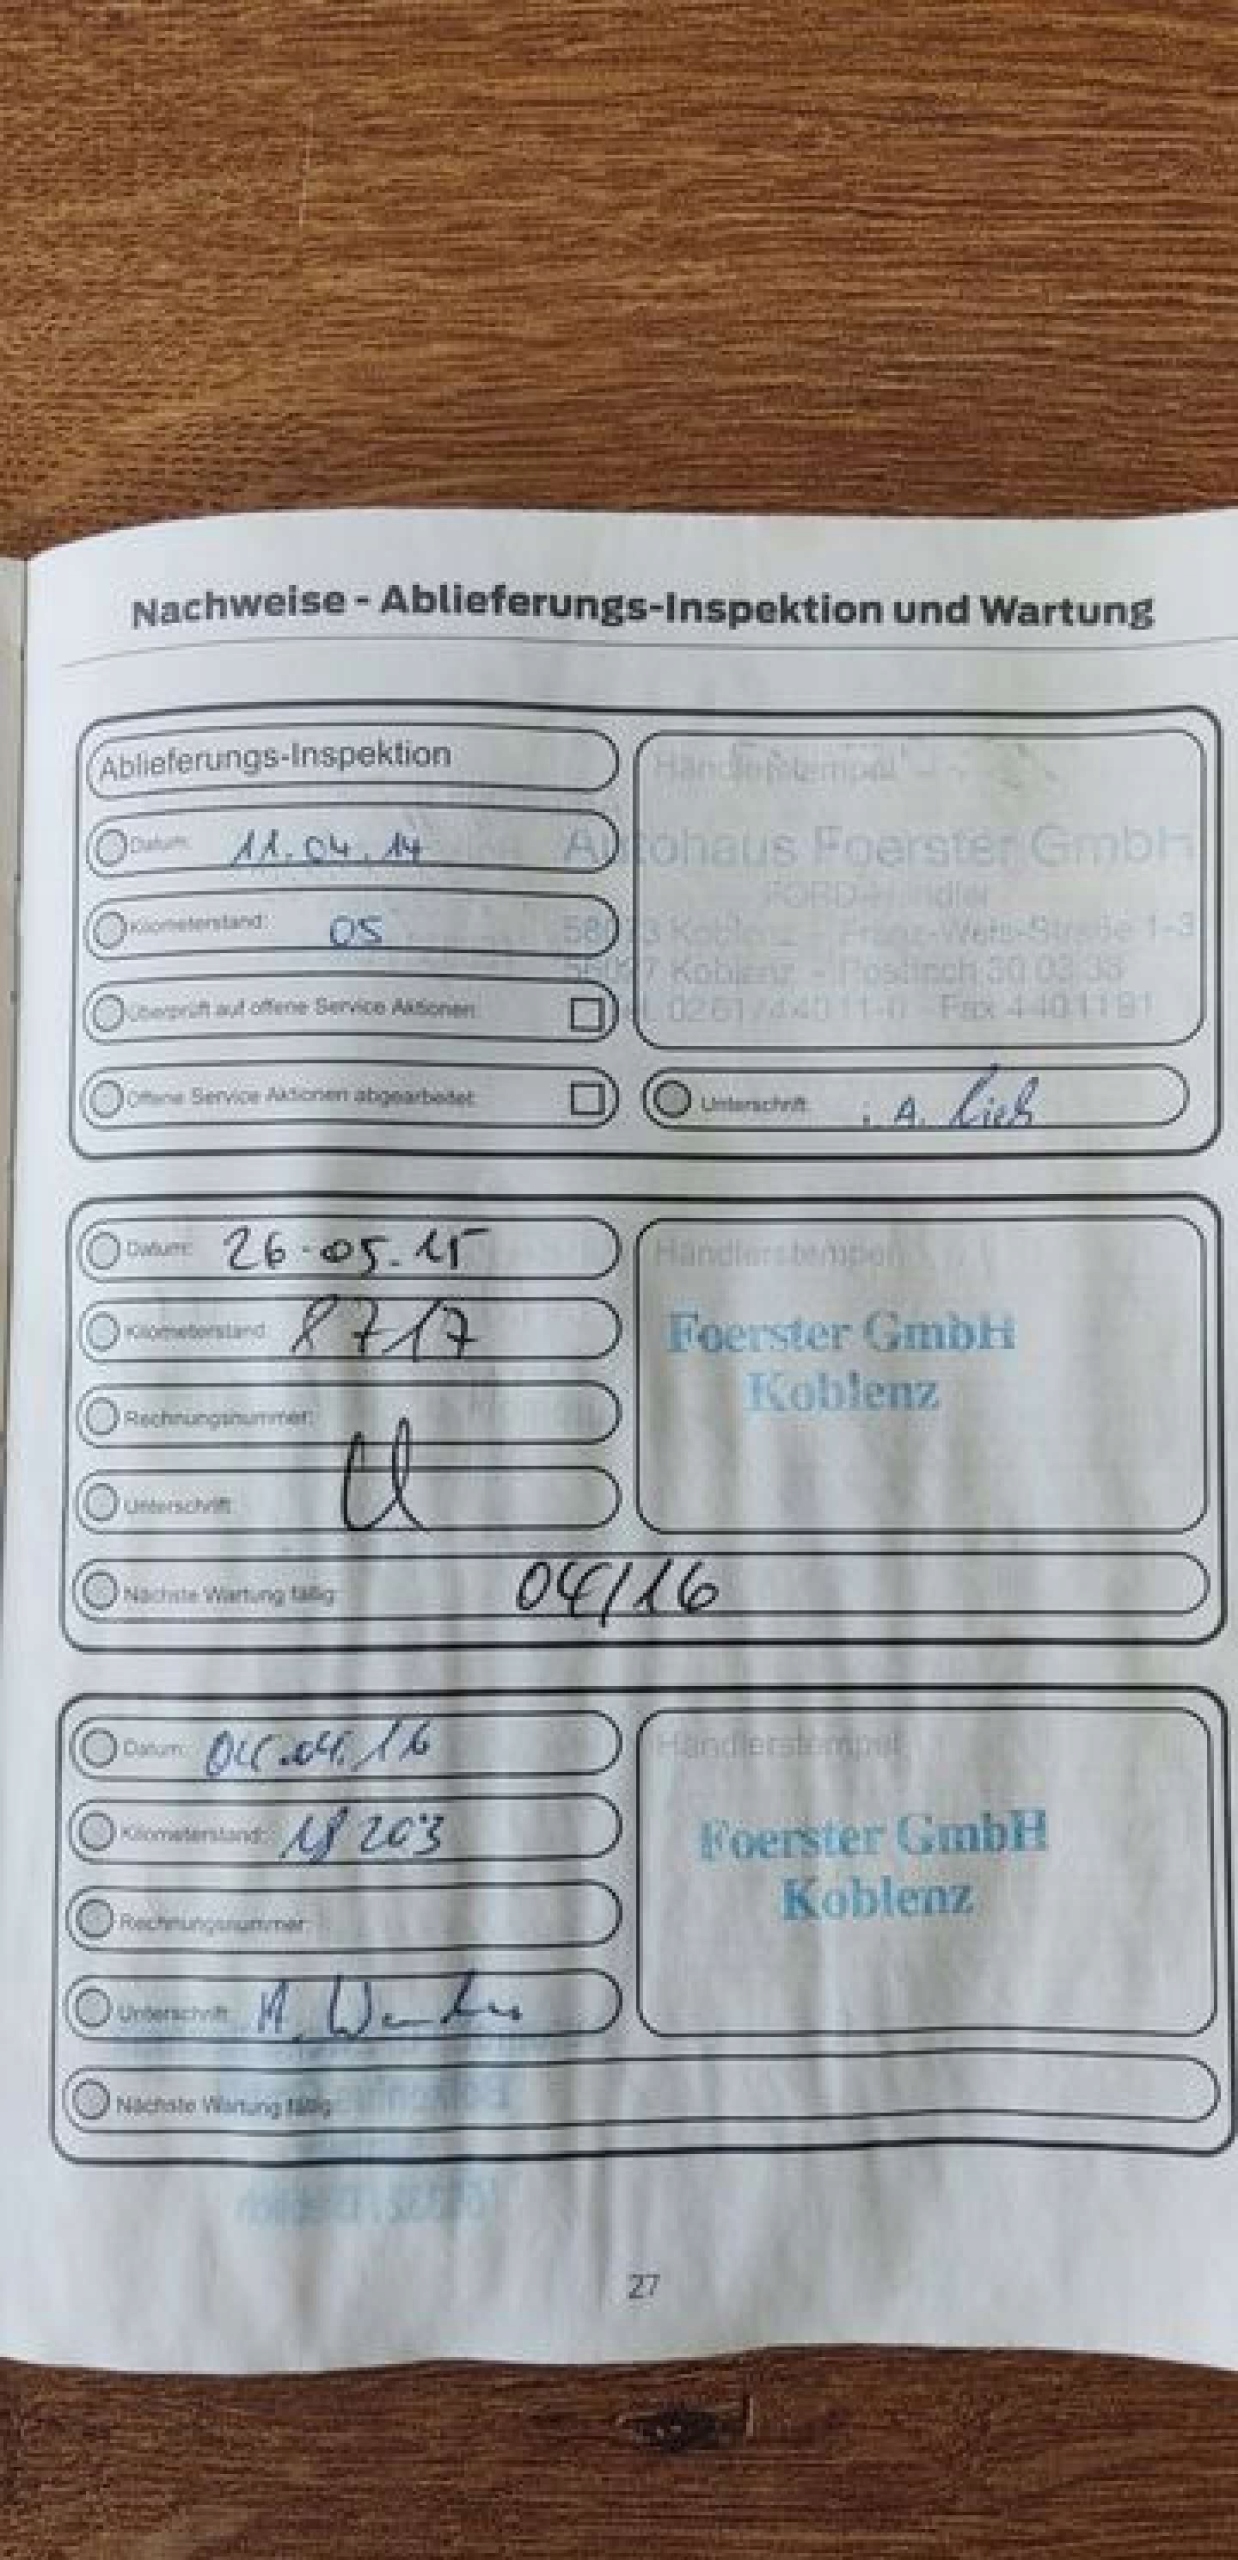 Nachweise - Ablieferungs-Inspektion und Wartung
Ablieferungs-Inspektion
Datum: 11.04.14
Kilometerstand: 05
Überprüft auf offene Service Aktionen:
Offene Service Aktionen abgearbeitet:
Händlerstempel
Autohaus Foerster GmbH
FORD-Händler
Koblenz - Franz-Weis-Straße 1-3
Koblenz - Postfach 30 03 38
0261/44011-0 - Fax 4401191
Unterschrift: i. A.
Datum: 26.05.15
Kilometerstand: 8717
Rechnungsnummer:
Unterschrift:
Nächste Wartung fällig: 04/16
Händlerstempel
Foerster GmbH
Koblenz
Datum: 04.04.16
Kilometerstand: 18203
Rechnungsnummer:
Unterschrift: M.
Nächste Wartung fällig:
Händlerstempel
Foerster GmbH
Koblenz
27